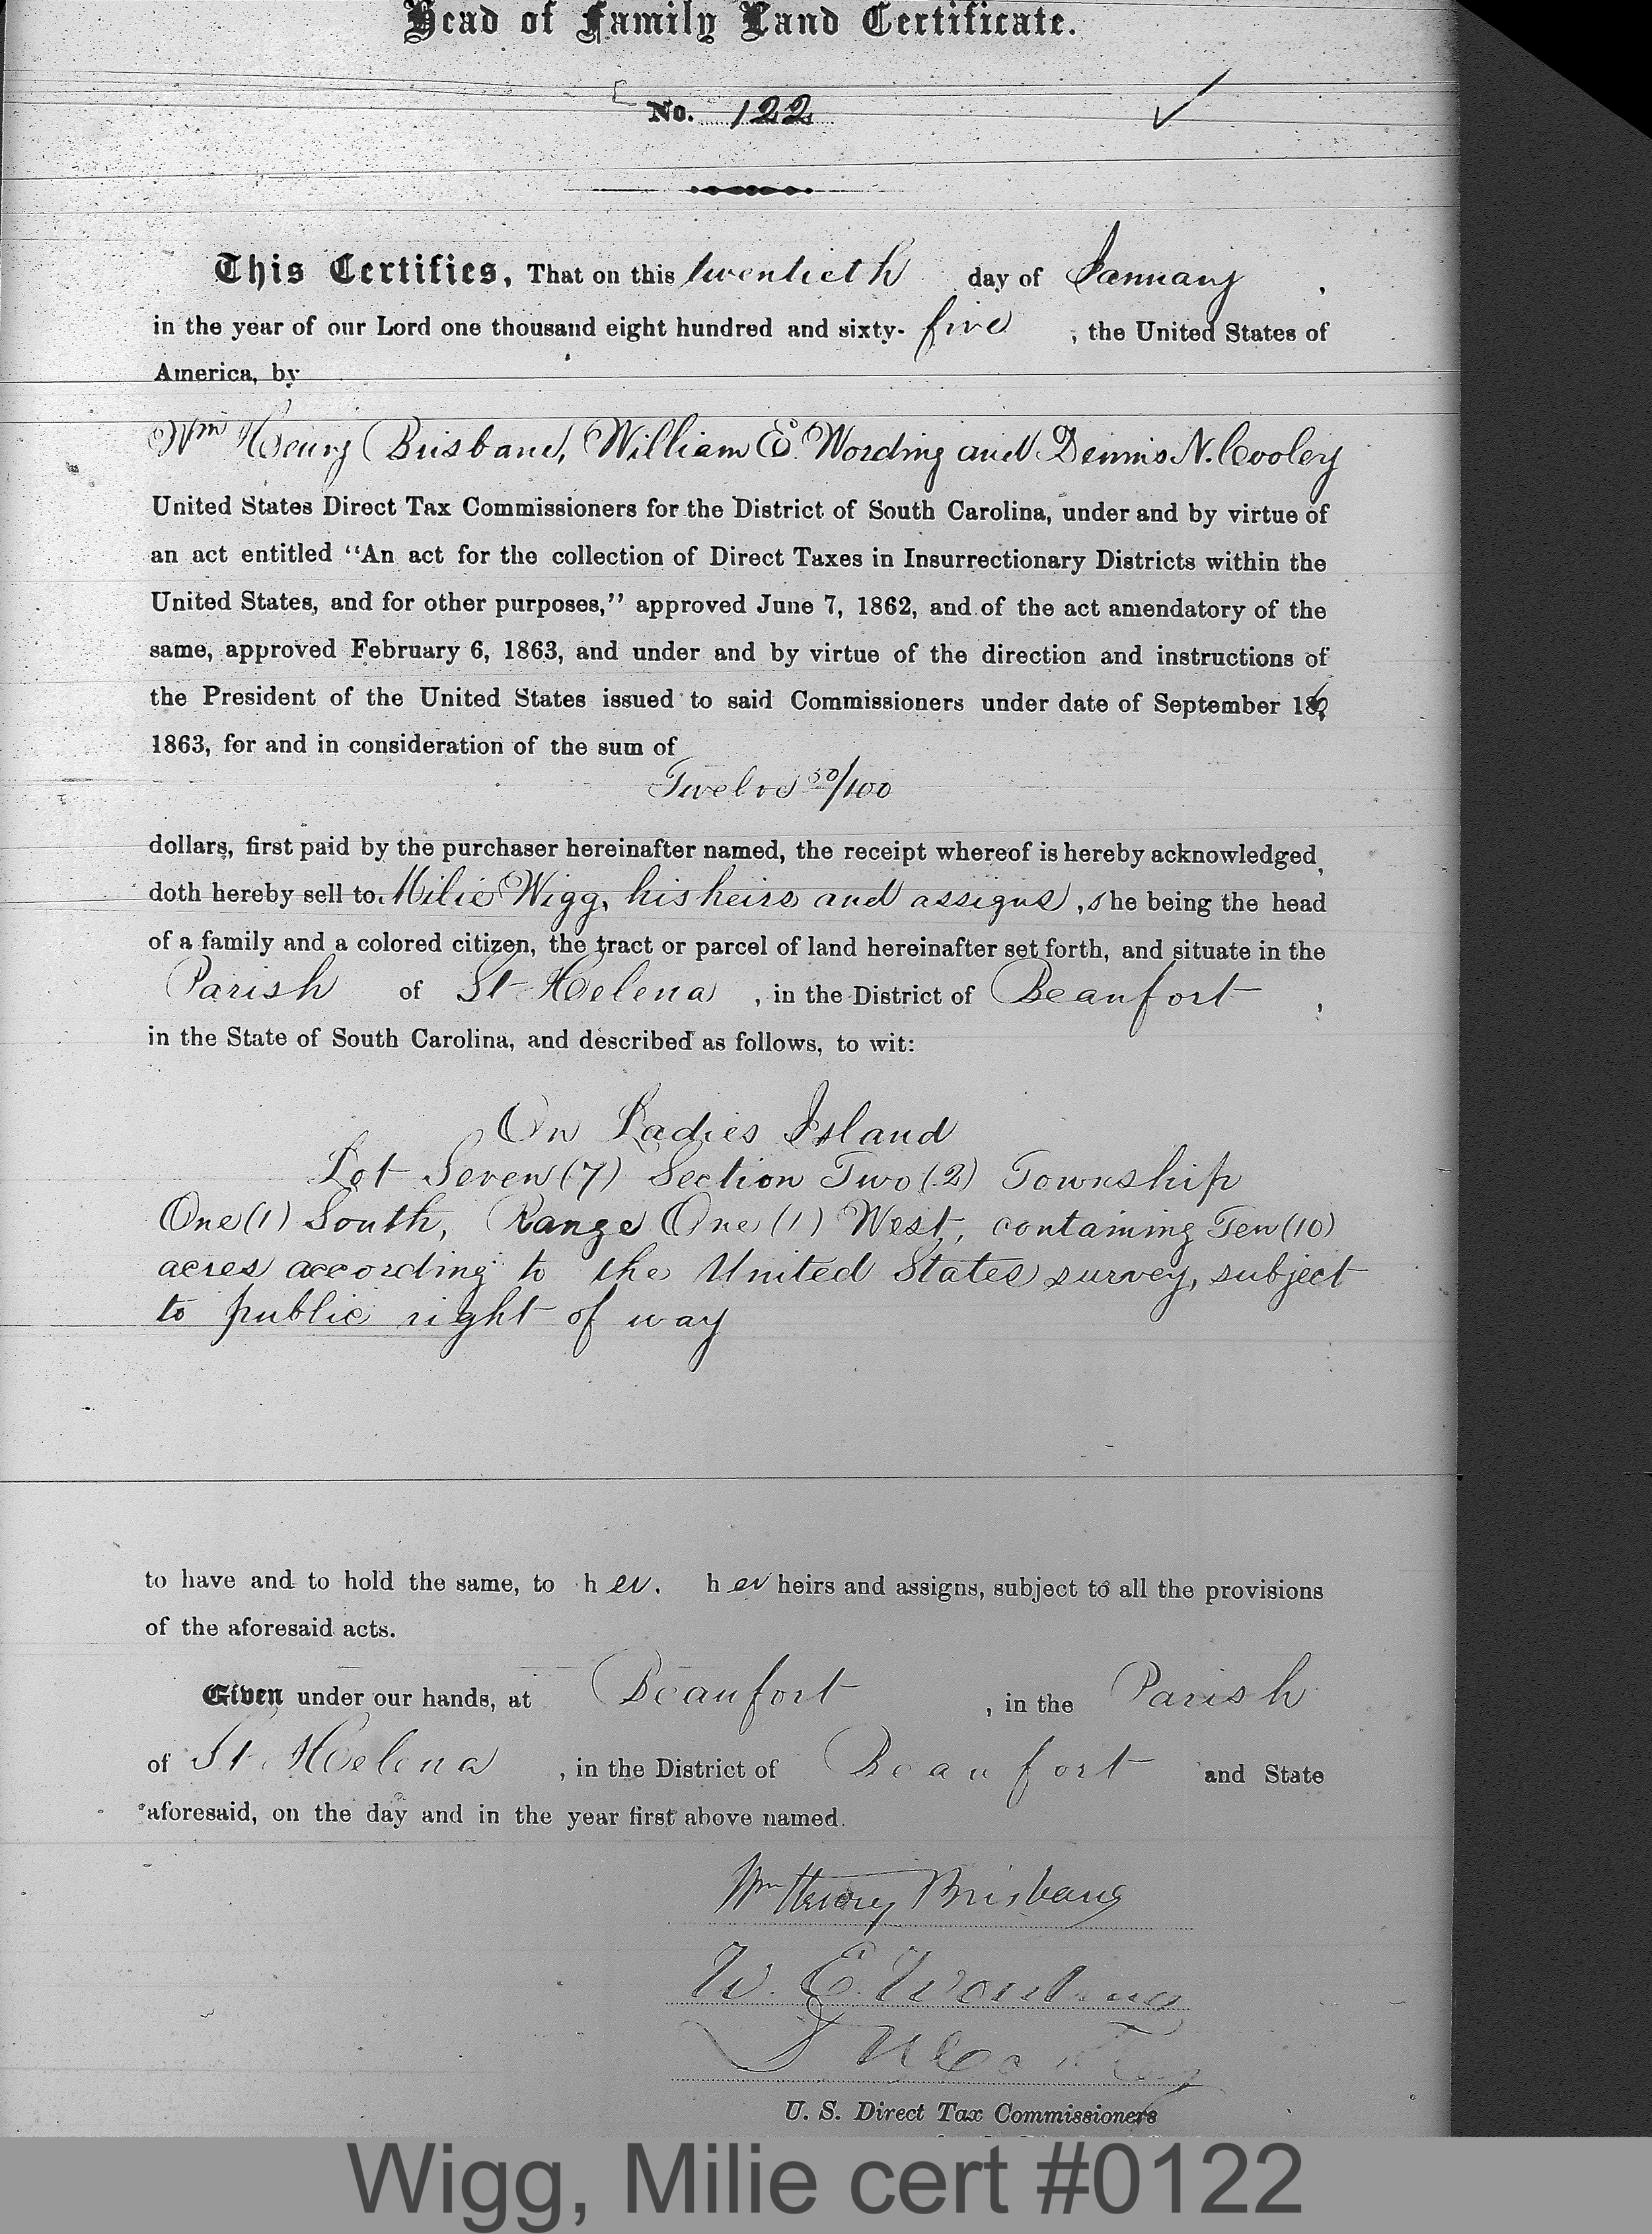 Head of Family Land Certificate.
No. 122
This Certifies, That on this twentieth day of January,
in the year of our Lord one thousand eight hundred and sixty-five, the United States of
America, by
Wm Henry Brisbane, William E. Wording and Dennis N. Cooley
United States Direct Tax Commissioners for the District of South Carolina, under and by virtue of
an act entitled "An act for the collection of Direct Taxes in Insurrectionary Districts within the
United States, and for other purposes," approved June 7, 1862, and of the act amendatory of the
same, approved February 6, 1863, and under and by virtue of the direction and instructions of
the President of the United States issued to said Commissioners under date of September
1863, for and in consideration of the sum of
Twelve 50/100
dollars, first paid by the purchaser hereinafter named, the receipt whereof is hereby acknowledged,
doth hereby sell to Milie Wigg, his heirs and assigns, she being the head
of a family and a colored citizen, the tract or parcel of land hereinafter set forth, and situate in the
Parish of St Helena, in the District of Beaufort,
in the State of South Carolina, and described as follows, to wit:
On Ladies Island
Lot Seven (7) Section Two (2) Township
One (1) South, Range One (1) West, containing Ten (10)
acres according to the United States survey, subject
to public right of way
to have and to hold the same, to her, her heirs and assigns, subject to all the provisions
of the aforesaid acts.
Given under our hands, at Beaufort, in the Parish
of St Helena, in the District of Beaufort and State
aforesaid, on the day and in the year first above named.
Wm Henry Brisbane
W. E. Wording
D N Cooley
U. S. Direct Tax Commissioners
Wigg, Milie cert #0122